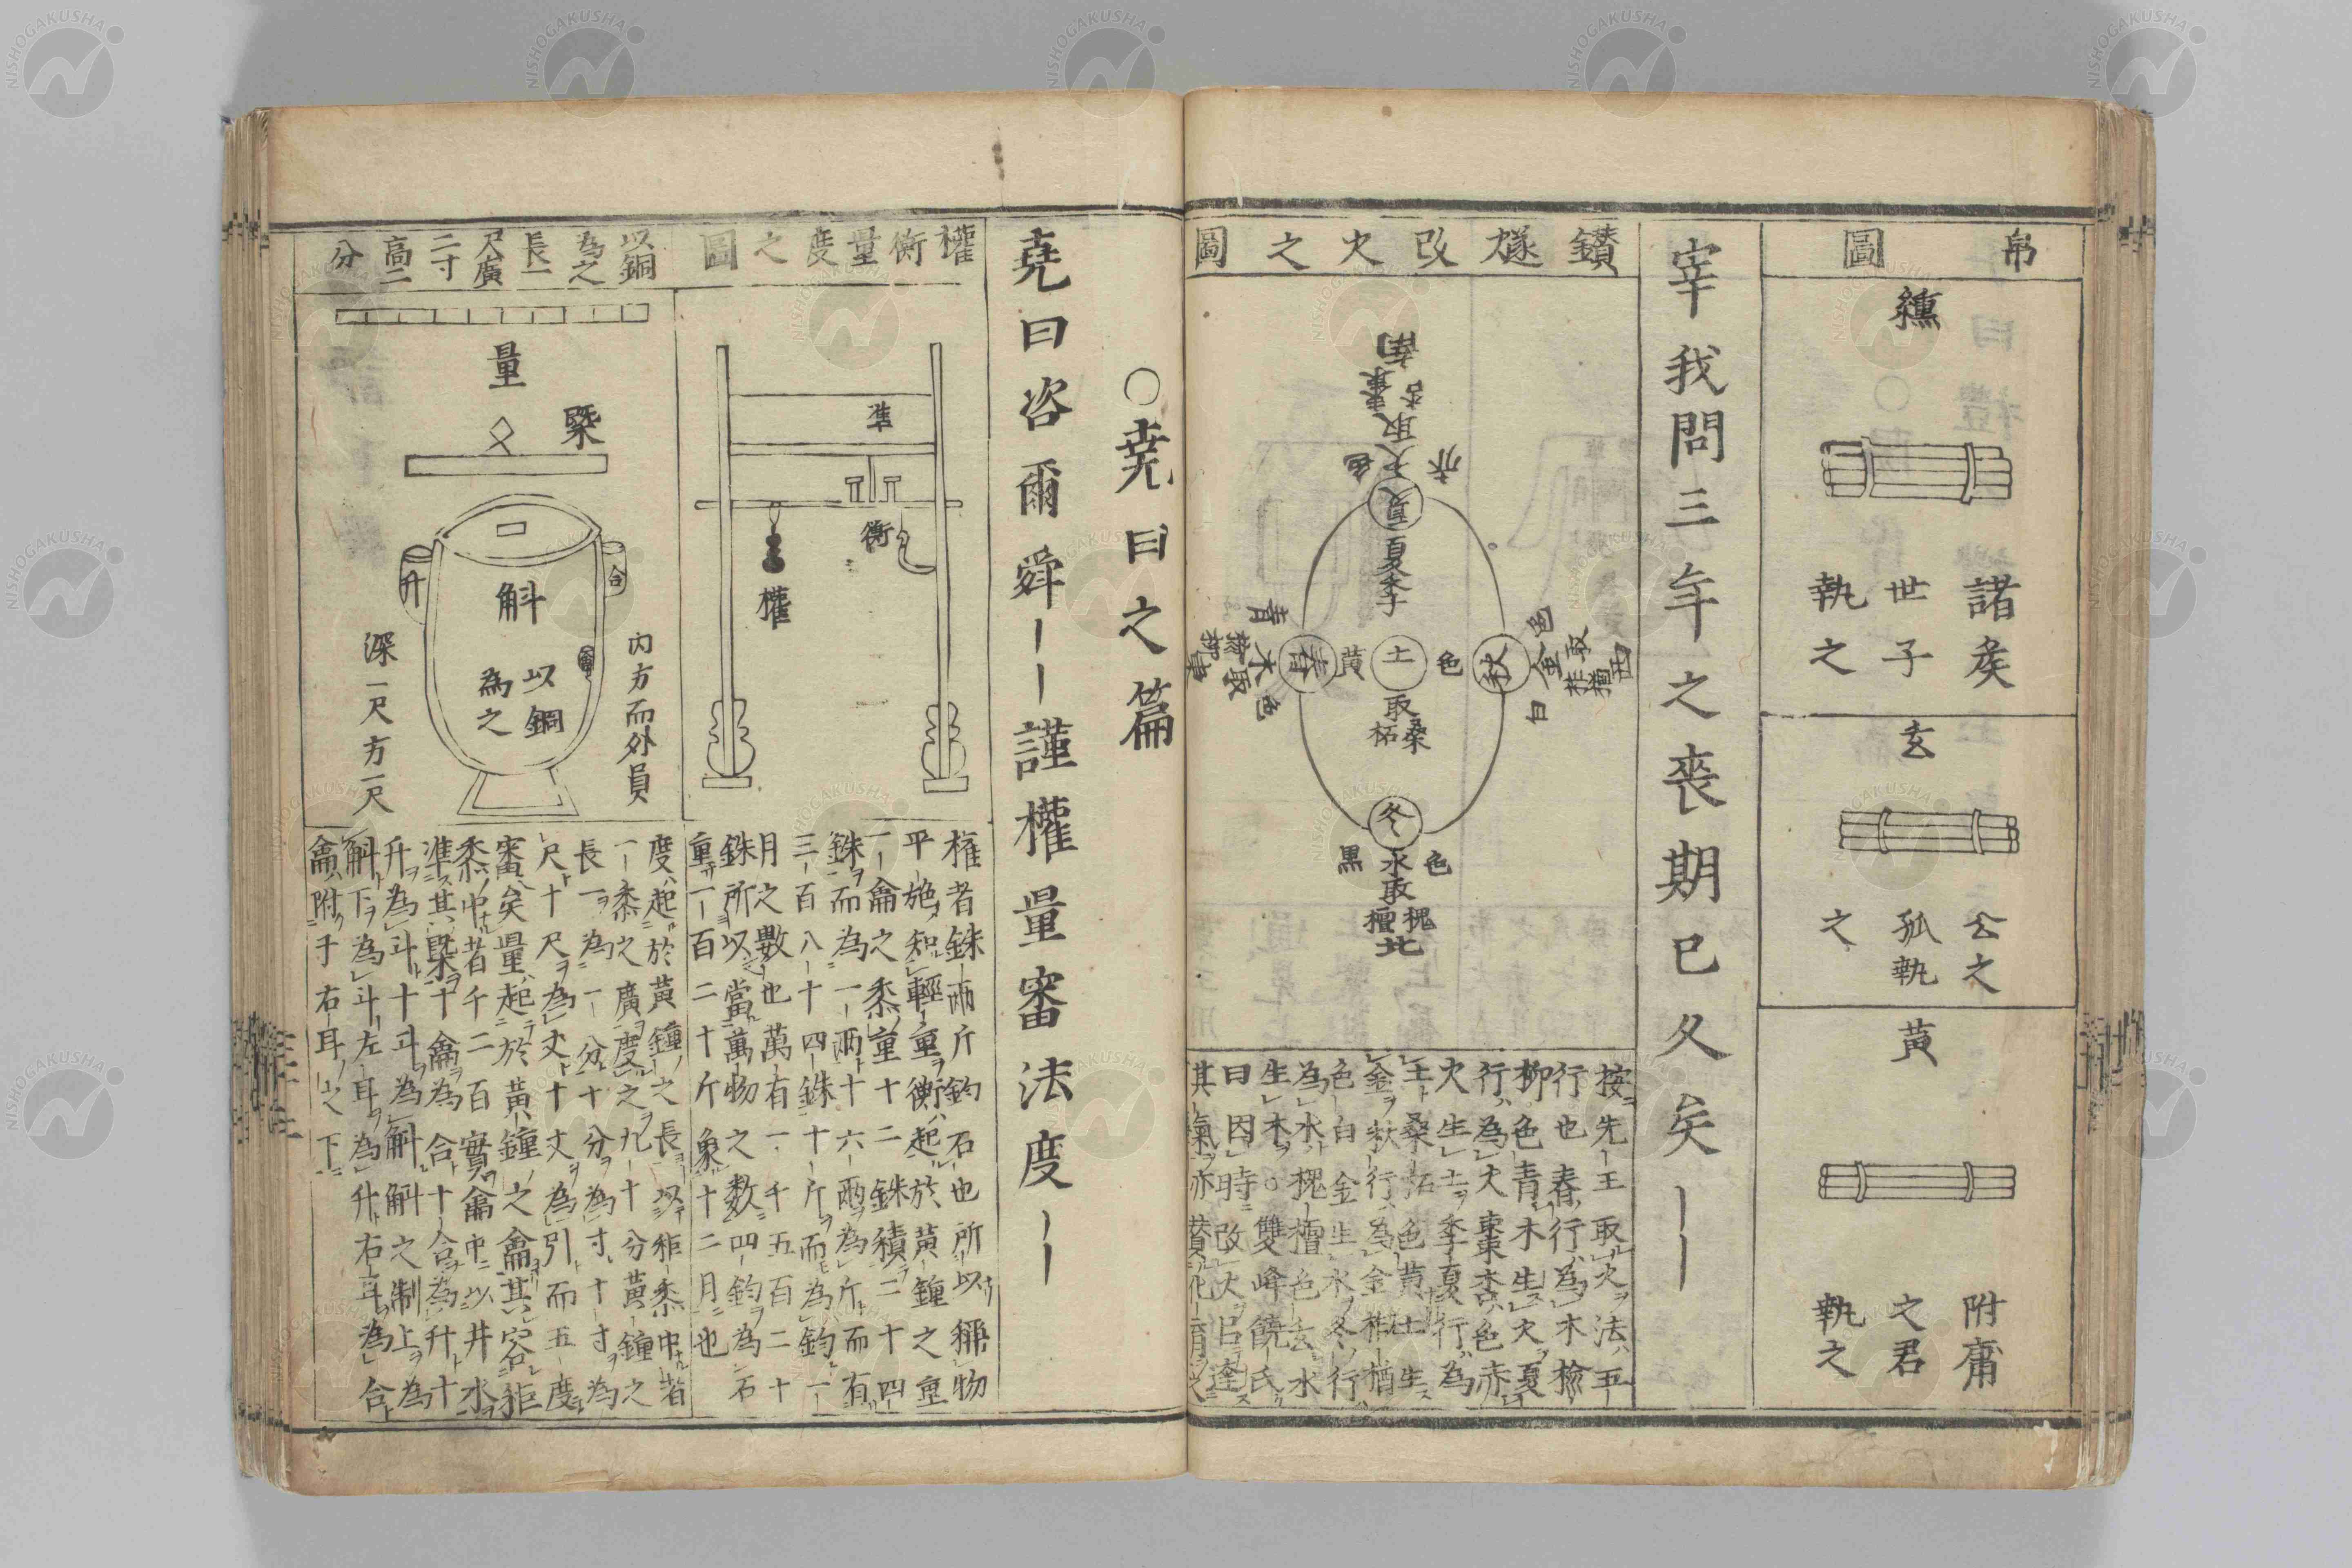 帛圖
纁
諸矦
世子
執之
玄
公之
孤執
之
黃
附庸
之君
執之
宰我問三年之喪期已久矣｜｜
鑚燧改火之圖
南
取棗杏
火
赤色
夏
夏季
土
黄色
取桑柘
秋
金
白色
取柞楢
西
春
木
青色
取榆柳
東
冬
水
黒色
取槐檀
北
按先王取火法五
行也春行為木榆
柳色青木生火夏
行為火棗杏色赤
火生土季夏行為
土桑柘色黄土生
金秋行為金柞楢
色白金生水冬行
為水槐檀色玄水
生木○雙峰饒氏
曰因時改火以達
其氣亦賛化育之
○堯曰之篇
堯曰咨爾舜｜｜謹權量審法度｜
權衡量度之圖
準
衡
權
權者銖兩斤鈞石也所以稱物
平施知輕重衡起於黃鐘之重
一龠之黍重十二銖積二十四
銖而為一兩十六兩為斤而有
三百八十四銖十斤而為鈞一
月之數也萬有一千五百二十
銖所以當萬物之数四鈞為石
重一百二十斤象十二月也
以銅
為之
長一
尺廣
二寸
高二
分
量
槩
斛
以銅
為之
合
升
龠
内方而外員
深一尺方一尺
度起於黃鐘之長以秬黍中者
一黍之廣度之九十分黃鐘之
長一為一分十分為寸十寸為
尺十尺為丈十丈為引而五度
審矣量起於黃鐘之龠其容秬
黍中者千二百實龠中以井水
準其槩十龠為合十合為升十
升為斗十斗為斛斛之制上為
斛下為斗左耳為升右耳為合
龠附于右耳之下